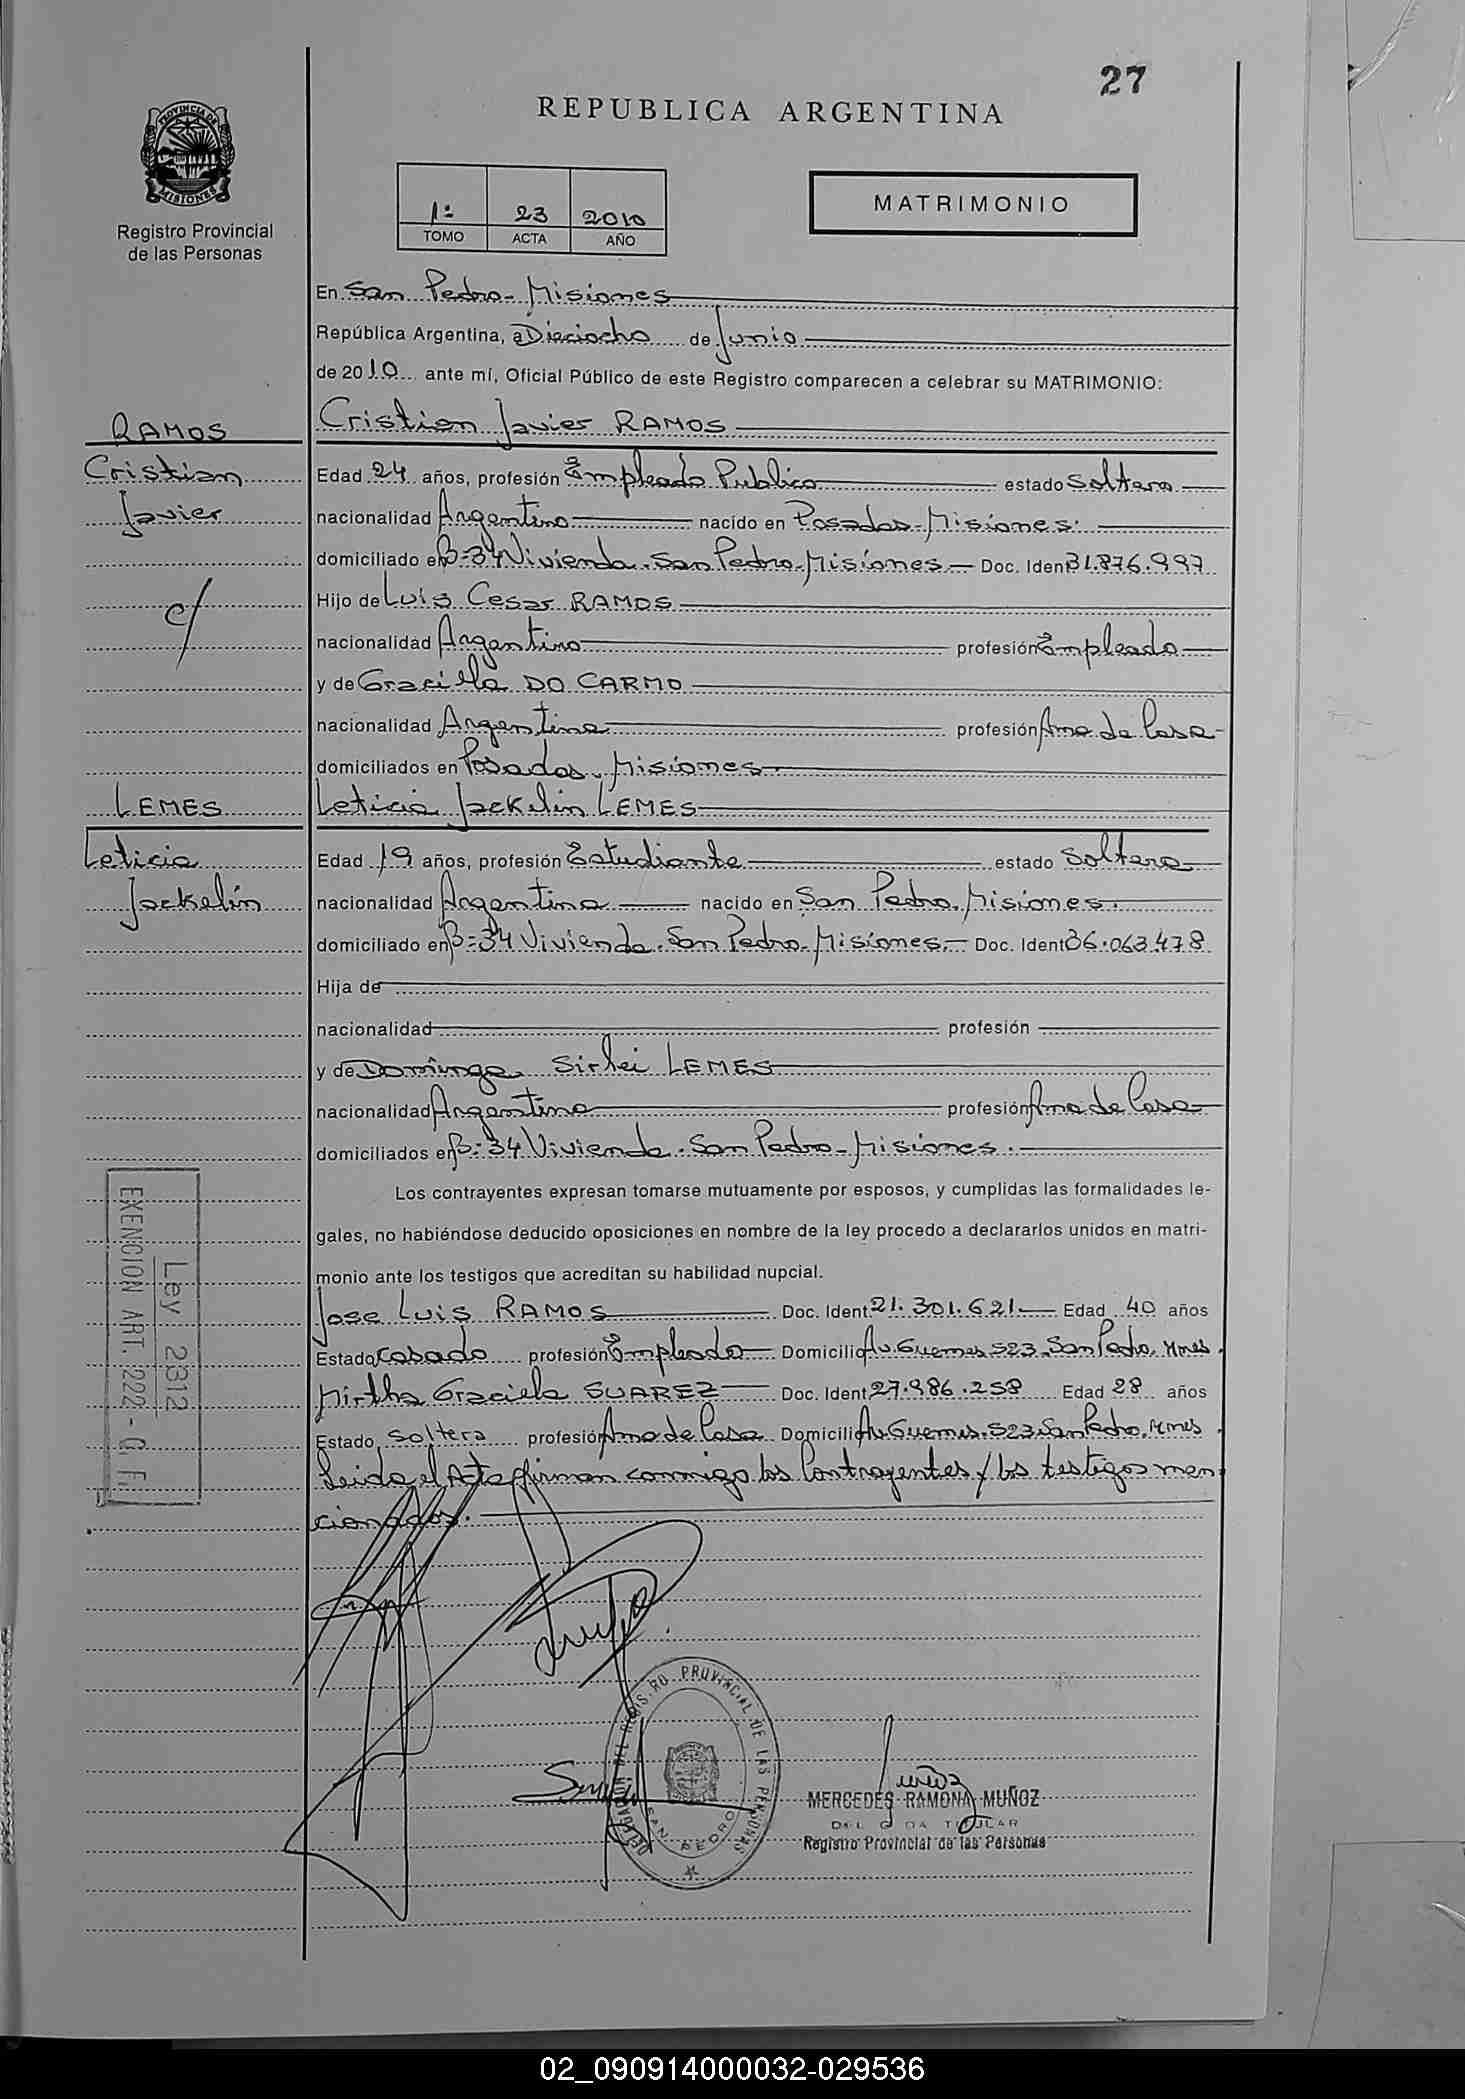 27
REPUBLICA ARGENTINA
PROVINCIA DE
MISIONES
Registro Provincial
de las Personas
1º 23 2010
TOMO ACTA AÑO
MATRIMONIO
En San Pedro - Misiones
República Argentina, a Dieciocho de Junio
de 2010 ante mí, Oficial Público de este Registro comparecen a celebrar su MATRIMONIO:
RAMOS
Cristian
Javier
c/
Cristian Javier RAMOS
Edad 24 años, profesión Empleado Publico estado Soltero
nacionalidad Argentino nacido en Posadas - Misiones.
domiciliado en B= 34 Vivienda. San Pedro - Misiones - Doc. Ident 31.876.997
Hijo de Luis Cesar RAMOS
nacionalidad Argentino profesión Empleado
y de Graciella DO CARMO
nacionalidad Argentina profesión Ama de Casa
domiciliados en Posadas - Misiones
LEMES
Leticia
Jackelin
Leticia Jackelin LEMES
Edad 19 años, profesión Estudiante estado Soltera
nacionalidad Argentina nacido en San Pedro. Misiones.
domiciliado en B= 34 Vivienda. San Pedro - Misiones. - Doc. Ident 36.063.478
Hija de
nacionalidad profesión
y de Dominga Sirlei LEMES
nacionalidad Argentina profesión Ama de Casa
domiciliados en B= 34 Vivienda. San Pedro - Misiones.
Los contrayentes expresan tomarse mutuamente por esposos, y cumplidas las formalidades le-
gales, no habiéndose deducido oposiciones en nombre de la ley procedo a declararlos unidos en matri-
monio ante los testigos que acreditan su habilidad nupcial.
Ley 2812
EXENCION ART. 222 - C. F.
Jose Luis RAMOS Doc. Ident 21.301.621 Edad 40 años
Estado Casado profesión Empleado Domicilio Av. Guemes 523 San Pedro, Mnes.
Mirtha Graciela SUAREZ Doc. Ident 27.986.258 Edad 28 años
Estado Soltera profesión Ama de Casa Domicilio Av. Guemes. 523 San Pedro, Mnes.
Leida el Acta firman conmigo los Contrayentes y los testigos men
cionados.
DELEGACION DEL REGISTRO PROVINCIAL DE LAS PERSONAS
SAN PEDRO
MERCEDES RAMONA MUÑOZ
DELEGADA TITULAR
Registro Provincial de las Personas
02_090914000032-029536